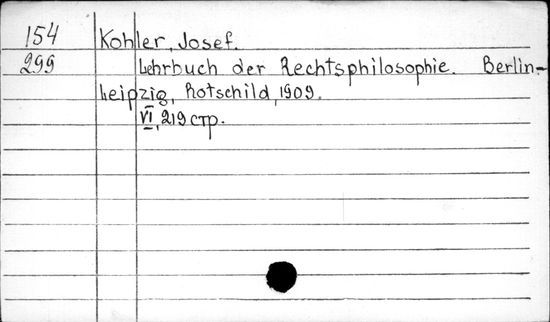 154 Kohler, Josef.
299 Lehrbuch der Rechtsphilosophie. Berlin-
Leipzig, Rotschild, 1909.
VI, 219 стр.